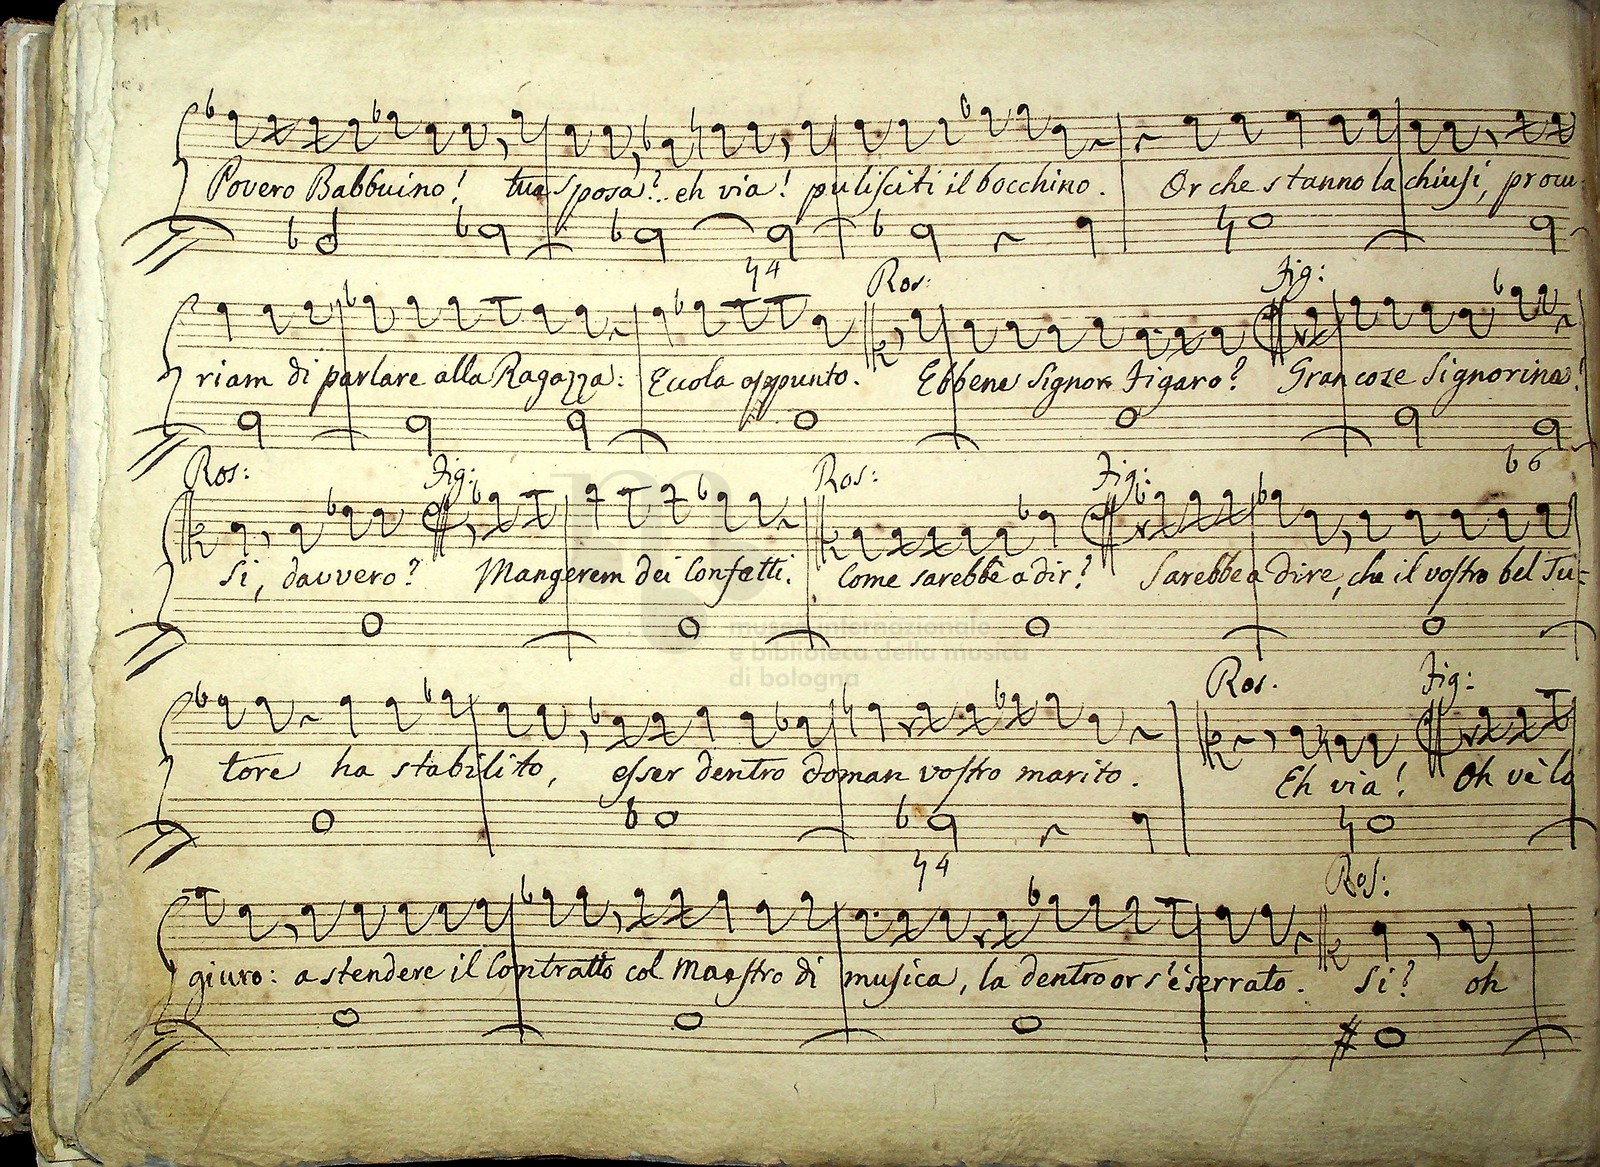 111
Povero Babbuino! tua sposa?.. eh via! pulisciti il bocchino. Or che stanno la chiusi, procu-
♮4
Ros: Fig:
riam di parlare alla Ragazza: Eccola appunto. Ebbene Signor Figaro? Gran cose Signorina!
♭6
Ros: Fig: Ros: Fig:
Si, davvero? Mangerem dei Confetti. Come sarebbe a dir? Sarebbe a dire, che il vostro bel Tu=
museo internazionale
e biblioteca della musica
di bologna
Ros. Fig:
tore ha stabilito, esser dentro doman vostro marito. Eh via! Oh vè lo
♮4
Ros:
giuro: a stendere il Contratto col Maestro di musica, la dentro or s'è serrato. Si? oh